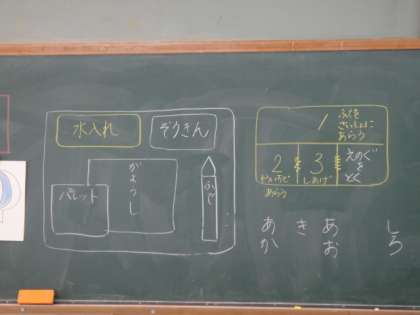 水入れ
ぞうきん
がようし
パレット
ふで
1
ふでを
さいしょに
あらう
2
もういちど
あらう
3
しあげ
えのぐ
を
とく
あか
き
あお
しろ